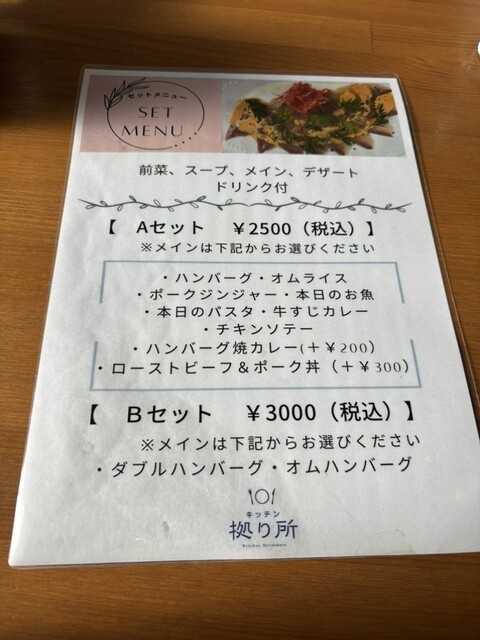 セットメニュー
SET
MENU
前菜、スープ、メイン、デザート
ドリンク付
【 Aセット ￥2500（税込）】
※メインは下記からお選びください
・ハンバーグ・オムライス
・ポークジンジャー・本日のお魚
・本日のパスタ・牛すじカレー
・チキンソテー
・ハンバーグ焼カレー(＋￥200)
・ローストビーフ＆ポーク丼（＋￥300）
【 Bセット ￥3000（税込）】
※メインは下記からお選びください
・ダブルハンバーグ・オムハンバーグ
キッチン
拠り所